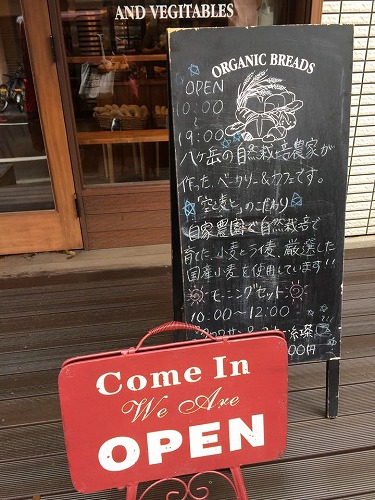 AND VEGITABLES
ORGANIC BREADS
OPEN
10:00
19:00
八ヶ岳の自然栽培農家が
作った、ベーカリー&カフェです。
「空と麦と」のこだわり
自家農園で自然栽培で
育てた、小麦とライ麦、厳選した
国産小麦を使用しています!!
モーニングセット
10:00～12:00
00円
Come In
We Are
OPEN